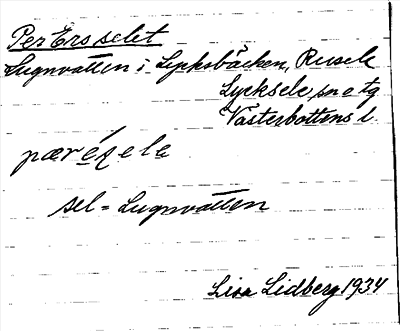 Per Ers selet
Lugnvatten i Lycksbäcken, Rusele
Lycksele sn o tg
Västerbottens l.
pæréṣele
sel = Lugnvatten
Lisa Lidberg 1934